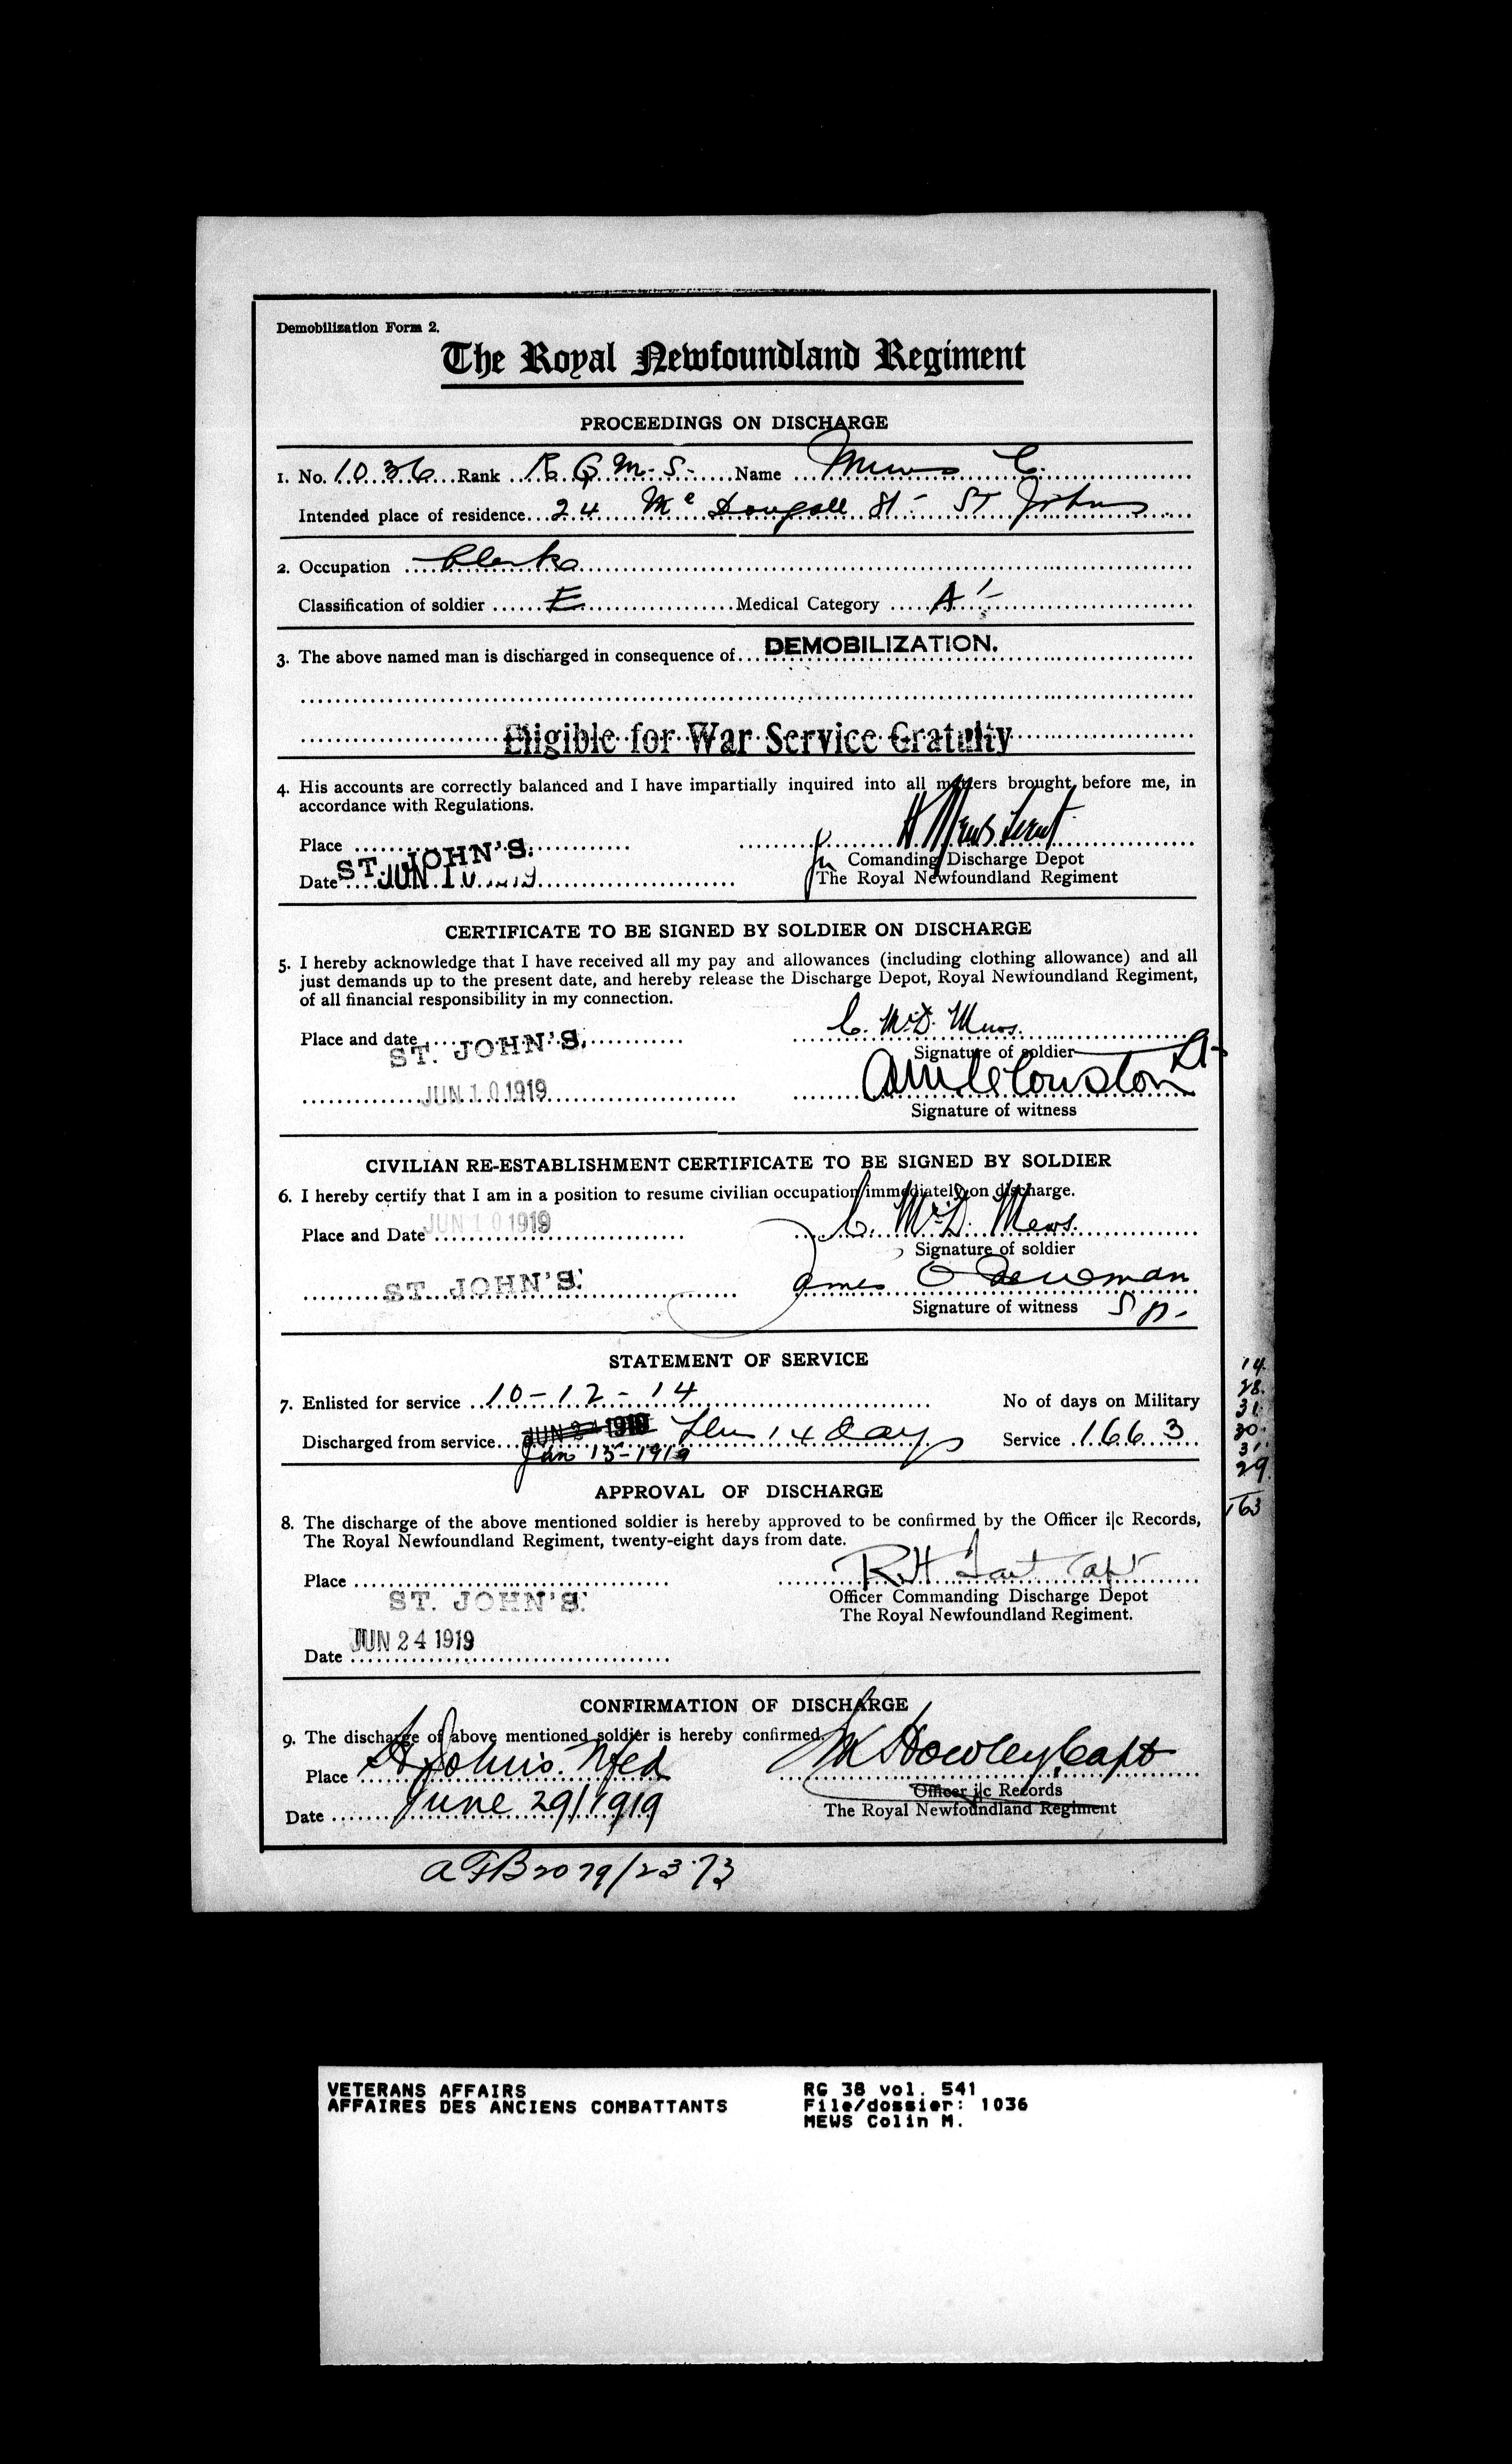 Demobilization Form 2.
The Royal Newfoundland Regiment
PROCEEDINGS ON DISCHARGE
1. No. 1036 Rank R Q M. S. Name Mews C.
Intended place of residence 24 Mc Dougall St - St Johns
2. Occupation Clerk
Classification of soldier E Medical Category A1
3. The above named man is discharged in consequence of DEMOBILIZATION.
Eligible for War Service Gratuity
4. His accounts are correctly balanced and I have impartially inquired into all matters brought before me, in
accordance with Regulations.
Place ST. JOHN'S. H Mews Lieut
for Comanding Discharge Depot
Date JUN 10 1919 The Royal Newfoundland Regiment
CERTIFICATE TO BE SIGNED BY SOLDIER ON DISCHARGE
5. I hereby acknowledge that I have received all my pay and allowances (including clothing allowance) and all
just demands up to the present date, and hereby release the Discharge Depot, Royal Newfoundland Regiment,
of all financial responsibility in my connection.
Place and date ST. JOHN'S. C. McD. Mews.
Signature of soldier
JUN 10 1919 Lt
Signature of witness
CIVILIAN RE-ESTABLISHMENT CERTIFICATE TO BE SIGNED BY SOLDIER
6. I hereby certify that I am in a position to resume civilian occupation immediately on discharge.
Place and Date JUN 10 1919 C. McD. Mews.
Signature of soldier
ST. JOHN'S. James O Newman
Signature of witness
STATEMENT OF SERVICE
7. Enlisted for service 10-12-14 No of days on Military
Discharged from service JUN 24 1919 14 days Service 1663
Jun 15-1919
14
28
31
30
31
29
163
APPROVAL OF DISCHARGE
8. The discharge of the above mentioned soldier is hereby approved to be confirmed by the Officer i|c Records,
The Royal Newfoundland Regiment, twenty-eight days from date.
Place ST. JOHN'S. R H Tait Capt
Officer Commanding Discharge Depot
The Royal Newfoundland Regiment.
Date JUN 24 1919
CONFIRMATION OF DISCHARGE
9. The discharge of above mentioned soldier is hereby confirmed.
Place St John's. Nfld Howley, Capt
Officer i|c Records
Date June 29/1919 The Royal Newfoundland Regiment
AFB2079/2373
VETERANS AFFAIRS RG 38 vol. 541
AFFAIRES DES ANCIENS COMBATTANTS File/dossier: 1036
MEWS Colin M.